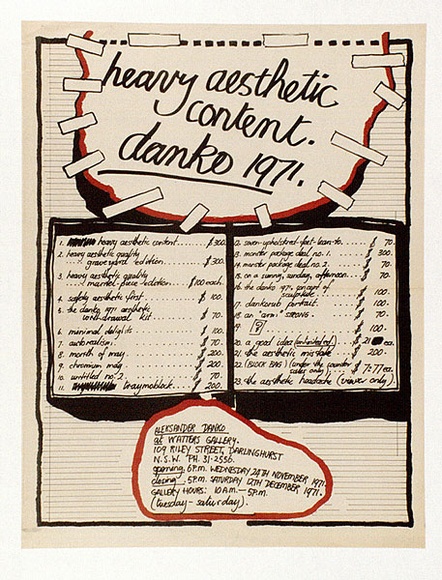 heavy aesthetic
content.
danko 1971.
1. heavy aesthetic content..... $300.
2. heavy aesthetic quality
graveyard edition..... $300.
3. heavy aesthetic quality
mantel-piece edition..... $100 each.
4. safety aesthetic first..... $ 100.
5. the danko 1971 aesthetic
withdrawal kit..... $ 70.
6. minimal delights..... $ 100.
7. autorealism..... $ 70.
8. month of may..... $ 200.
9. chromium mdg..... $ 200.
10. untitled no. 2..... $ 70.
11. traymoblock.. $ 200.
12. seven-upholstered-feet-lean-to.... $ 70.
13. monster package deal no. 1.. $ 300.
14. monster package deal no. 2.. $ 70.
15. on a sunny, sunday, afternoon.. $ 70.
16. the danko 1971 version of
sculpture..... $ 100.
17. dankorub portrait..... $ 100.
18. an "arm" strong..... $ 70.
19. ?..... $ 100.
20. a good idea
21. the aesthetic mistake..... $ 200.
22. (BLOCK BAG) (under the counter
sales only). $ 7.77 ea.
23. the aesthetic headache (viewer only).
ALEKSANDER DANKO.
at WATTERS GALLERY.
109 RILEY STREET, DARLINGHURST
N.S.W. PH. 31-2556.
opening, 6P.M. WEDNESDAY 24TH NOVEMBER 1971.
closing, 5P.M. SATURDAY 12TH DECEMBER 1971.
GALLERY HOURS: 10A.M.—5P.M.
(tuesday - saturday).